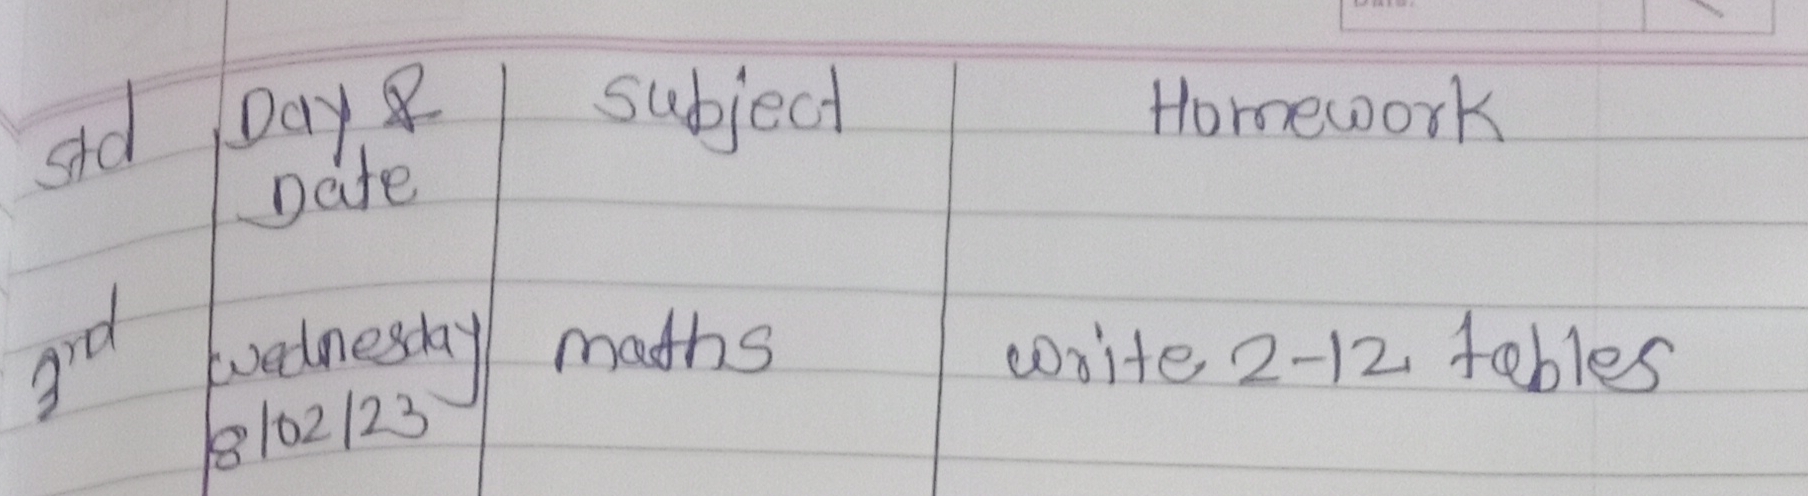 std Day & Date Subject Homework
3rd wednesday 8/02/23 maths write 2-12 tables